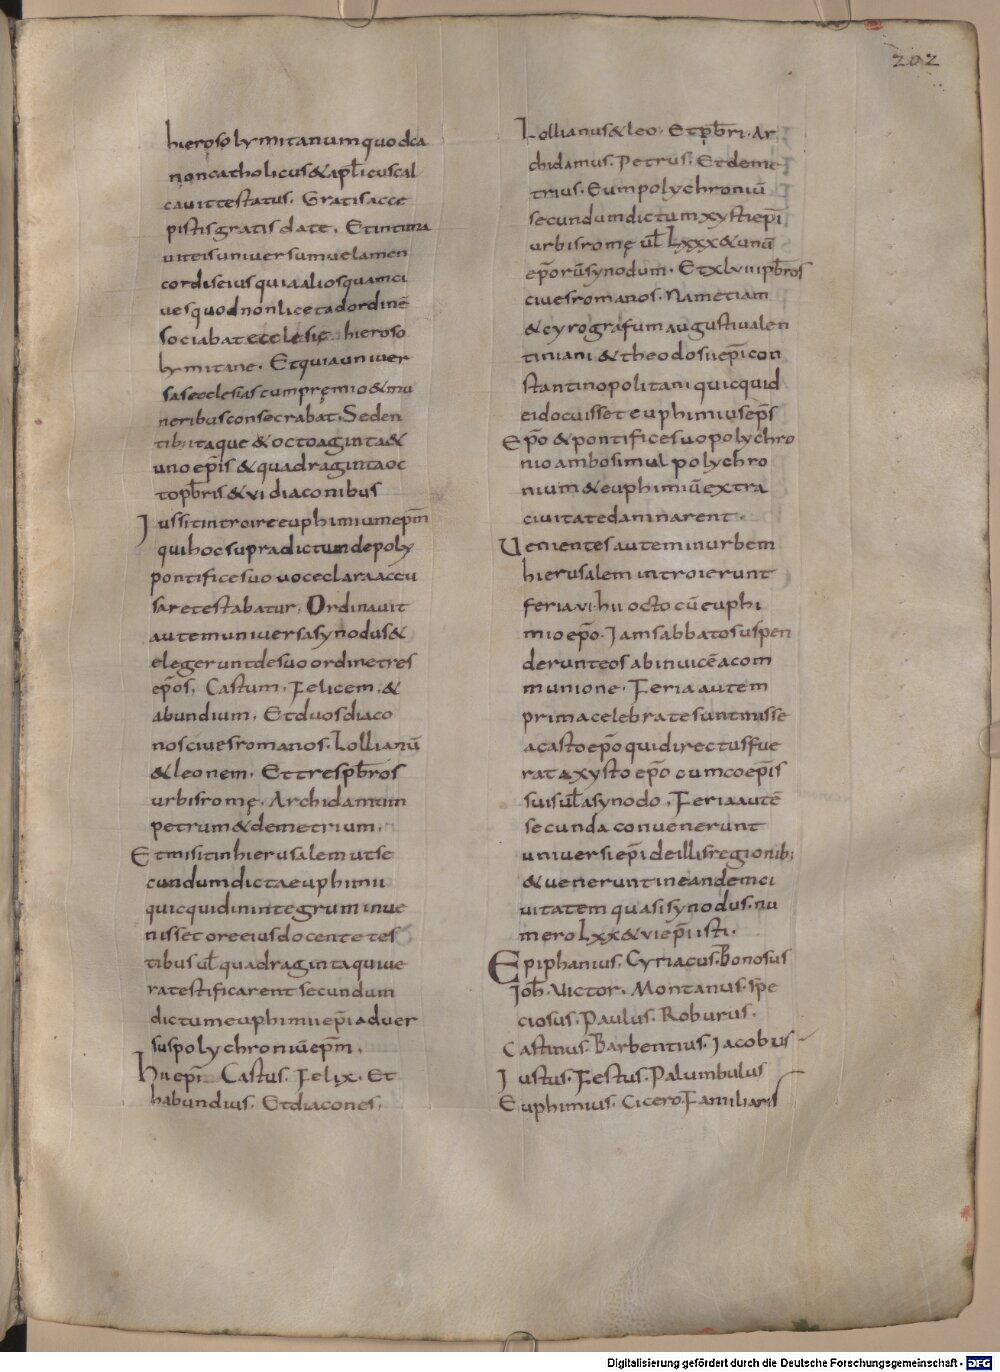 202
hierosolymitanum quod ca
non catholicus & apłicus cal
cavit testatus. Gratis acce
pistis gratis date. Et intima
viteis universum velamen
cordis eius quia alios quam ci
ves quod non licet ad ordinē
sociabat ecclesię hieroso
lymitane. Et quia univer
sas ecclesias cum pręmio & mu
neribus consecrabat. Seden
tib; itaque & octoaginta &
uno ep̄is & quadraginta oc
to pb̄ris & vi diaconibus
Iussit introire euphimium ep̄m
qui hoc supradictum de poly
pontifice suo voce clara accu
sare testabatur. Ordinavit
autem universa synodus &
elegerunt de suo ordine tres
ep̄os. Castum. Felicem. &
abundium. Et duos diaco
nos cives romanos. Lollianū
& leonem. Et tres pb̄ros
urbis romę. Archidamum
petrum & demetrium.
Et misit in hierusalem ut se
cundum dicta euphimii
quicquid in integrum inve
nisset ore eius docente tes
tibus vł quadraginta qui ve
ra testificarent secundum
dictum euphimii ep̄i adver
sus polychroniū ep̄m.
Hii ep̄i Castus. Felix. Et
habundius. Et diacones.
Lollianus & leo. Et pb̄ri. Ar
chidamus. Petrus. Et deme
trius. Eum polychroniū
secundum dictum xysti ep̄i
urbis romę vł Lxxx & unū
ep̄orū synodum. Et xlviii pb̄ros
cives romanos. Nam etiam
& cyrografum augusti valen
tiniani & theodosii ep̄i con
stantinopolitani quicquid
ei docuisset euphimius ep̄s
Ep̄o & pontifice suo polychro
nio ambo simul polychro
nium & euphimiū extra
civitate damnarent.
Venientes autem in urbem
hierusalem introierunt
feria vi. hii octo cū euphi
mio ep̄o. Iam sabbato suspen
derunt eos ab invicē a com
munione. Feria autem
prima celebrate sunt misse
a casto ep̄o qui directus fue
rat a xysto ep̄o cum coep̄is
suis vł a synodo. Feria autē
secunda convenerunt
universi ep̄i de illis regionib;
& venerunt in eandem ci
vitatem quasi synodus. nu
mero Lxx & vi ep̄i isti.
Epiphanius. Cyriacus. Bonosus
Ioh̄. Victor. Montanus. spe
ciosus. Paulus. Roburus.
Castinus. Barbentius. Iacobus
Iustus. Festus. Palumbulus
Euphimius. Cicero. Familiaris
Digitalisierung gefördert durch die Deutsche Forschungsgemeinschaft - DFG